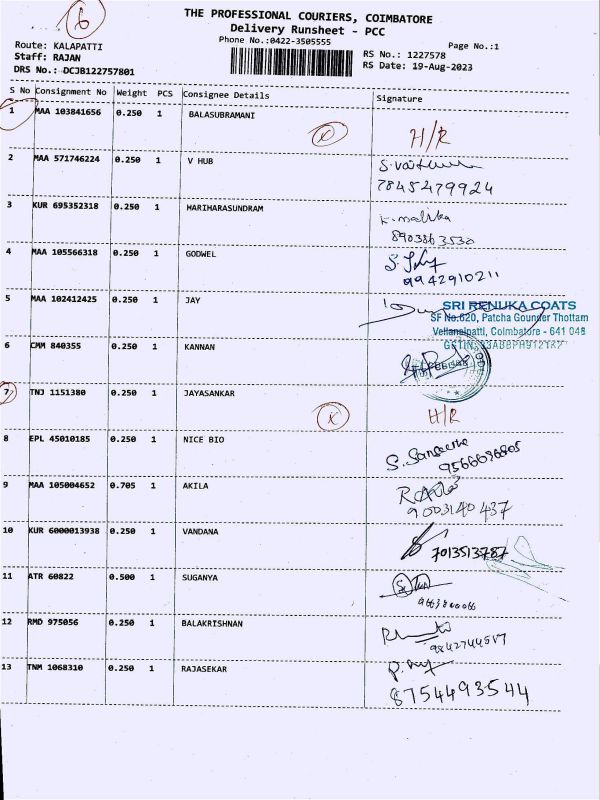 6
THE PROFESSIONAL COURIERS, COIMBATORE
Delivery Runsheet - PCC
Phone No.:0422-3505555
Page No.:1
Route: KALAPATTI
Staff: RAJAN
DRS No.: DCJB122757801
RS No.: 1227578
RS Date: 19-Aug-2023
S No Consignment No Weight PCS Consignee Details Signature
1 MAA 103841656 0.250 1 BALASUBRAMANI
X H/R
2 MAA 571746224 0.250 1 V HUB
7845479924
3 KUR 695352318 0.250 1 HARIHARASUNDRAM K. mallika
8903363530
4 MAA 105566318 0.250 1 GODWEL
9942910211
5 MAA 102412425 0.250 1 JAY
SRI RENUKA COATS
SF No.620, Patcha Gounder Thottam
Vellanaipatti, Coimbatore - 641 048
6 CMM 840355 0.250 1 KANNAN
7 TNJ 1151380 0.250 1 JAYASANKAR
X H/R
8 EPL 45010185 0.250 1 NICE BIO
9 MAA 105004652 0.705 1 AKILA
9003140437
10 KUR 6000013938 0.250 1 VANDANA
7013513787
11 ATR 60822 0.500 1 SUGANYA
12 RMD 975056 0.250 1 BALAKRISHNAN
9842744517
13 TNM 1068310 0.250 1 RAJASEKAR
8754493544